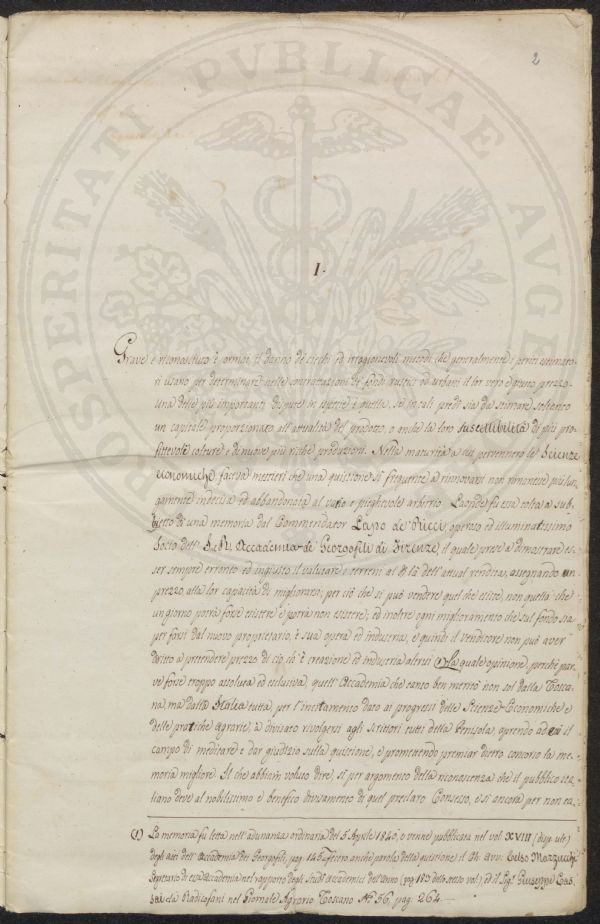 2
PROSPERITATI PVBLICAE AVGENDAE
I.
Grave e riconosciuto è ormai il danno de' ciechi ed irragionevoli metodi che generalmente i periti estimato-
ri usano per determinare nelle contrattazioni di fondi rustici ed urbani il lor vero e giusto prezzo
una delle più importanti dispute in ispecie è quella, se in tali predi sia da stimare soltanto
un capitale proporzionato all'attualità del prodotto, o anche la loro suscettibilità di più pro-
fittevoli colture e di nuove più ricche produzioni. Nella maturità a cui pervennero le Scienze
economiche, faceva mestieri che una quistione sì frequente a rinnovarsi non rimanesse più lun-
gamente indecisa ed abbandonata al vario e pieghevole arbitrio. Laonde fu essa tolta a sub-
bietto di una memoria dal Commendator Lapo de' Ricci, operoso ed illuminatissimo
Socio dell' I. e R. Accademia de' Georgofili di Firenze, il quale prese a dimostrare es-
ser sempre erroneo ed ingiusto il valutare i terreni al di là dell'attual rendita, assegnando un
prezzo alla lor capacità di migliorarsi; per ciò che si può vendere quel che esiste, non quello che
un giorno potrà forse esistere e potrà non esistere; ed inoltre ogni miglioramento che sul fondo sia
per farsi dal nuovo proprietario, è sua opera ed industria, e quindi il venditore non può aver
diritto a pretendere prezzo di ciò ch' è creazione ed industria altrui (1) La quale opinione, perchè par-
ve forse troppo assoluta ed esclusiva, quell' Accademia che tanto ben meritò non sol dalla Tosca-
na, ma dalla Italia tutta, per l'incitamento dato ai progressi delle Scienze Economiche e
delle pratiche Agrarie, à divisato rivolgersi agli Scrittori tutti della Penisola, aprendo ad essi il
campo di meditare e dar giudizio sulla quistione, e promettendo premiar dietro concorso la me-
moria migliore. Il che abbiam voluto dire, sì per argomento della riconoscenza che il pubblico ita-
liano deve al nobilissimo e benefico divisamento di quel preclaro Consesso, e sì ancora per non ta-
(1) La memoria fu letta nell' adunanza ordinaria del 5 Aprile 1840, e venne pubblicata nel vol XVIII (disp. ulte)
degli atti dell' Accademia dei Georgofili, pag. 145. Fecero anche parola della quistione il Ch. Avv. Celso Marzucchi
Segretario di essa Accademia nel rapporto degli Studi Accademici dell' anno (pag 183 dello stesso vol.) ed il Sig. Giuseppe Cas-
sai da Radicofani nel Giornale Agrario Toscano N.° 56, pag. 264